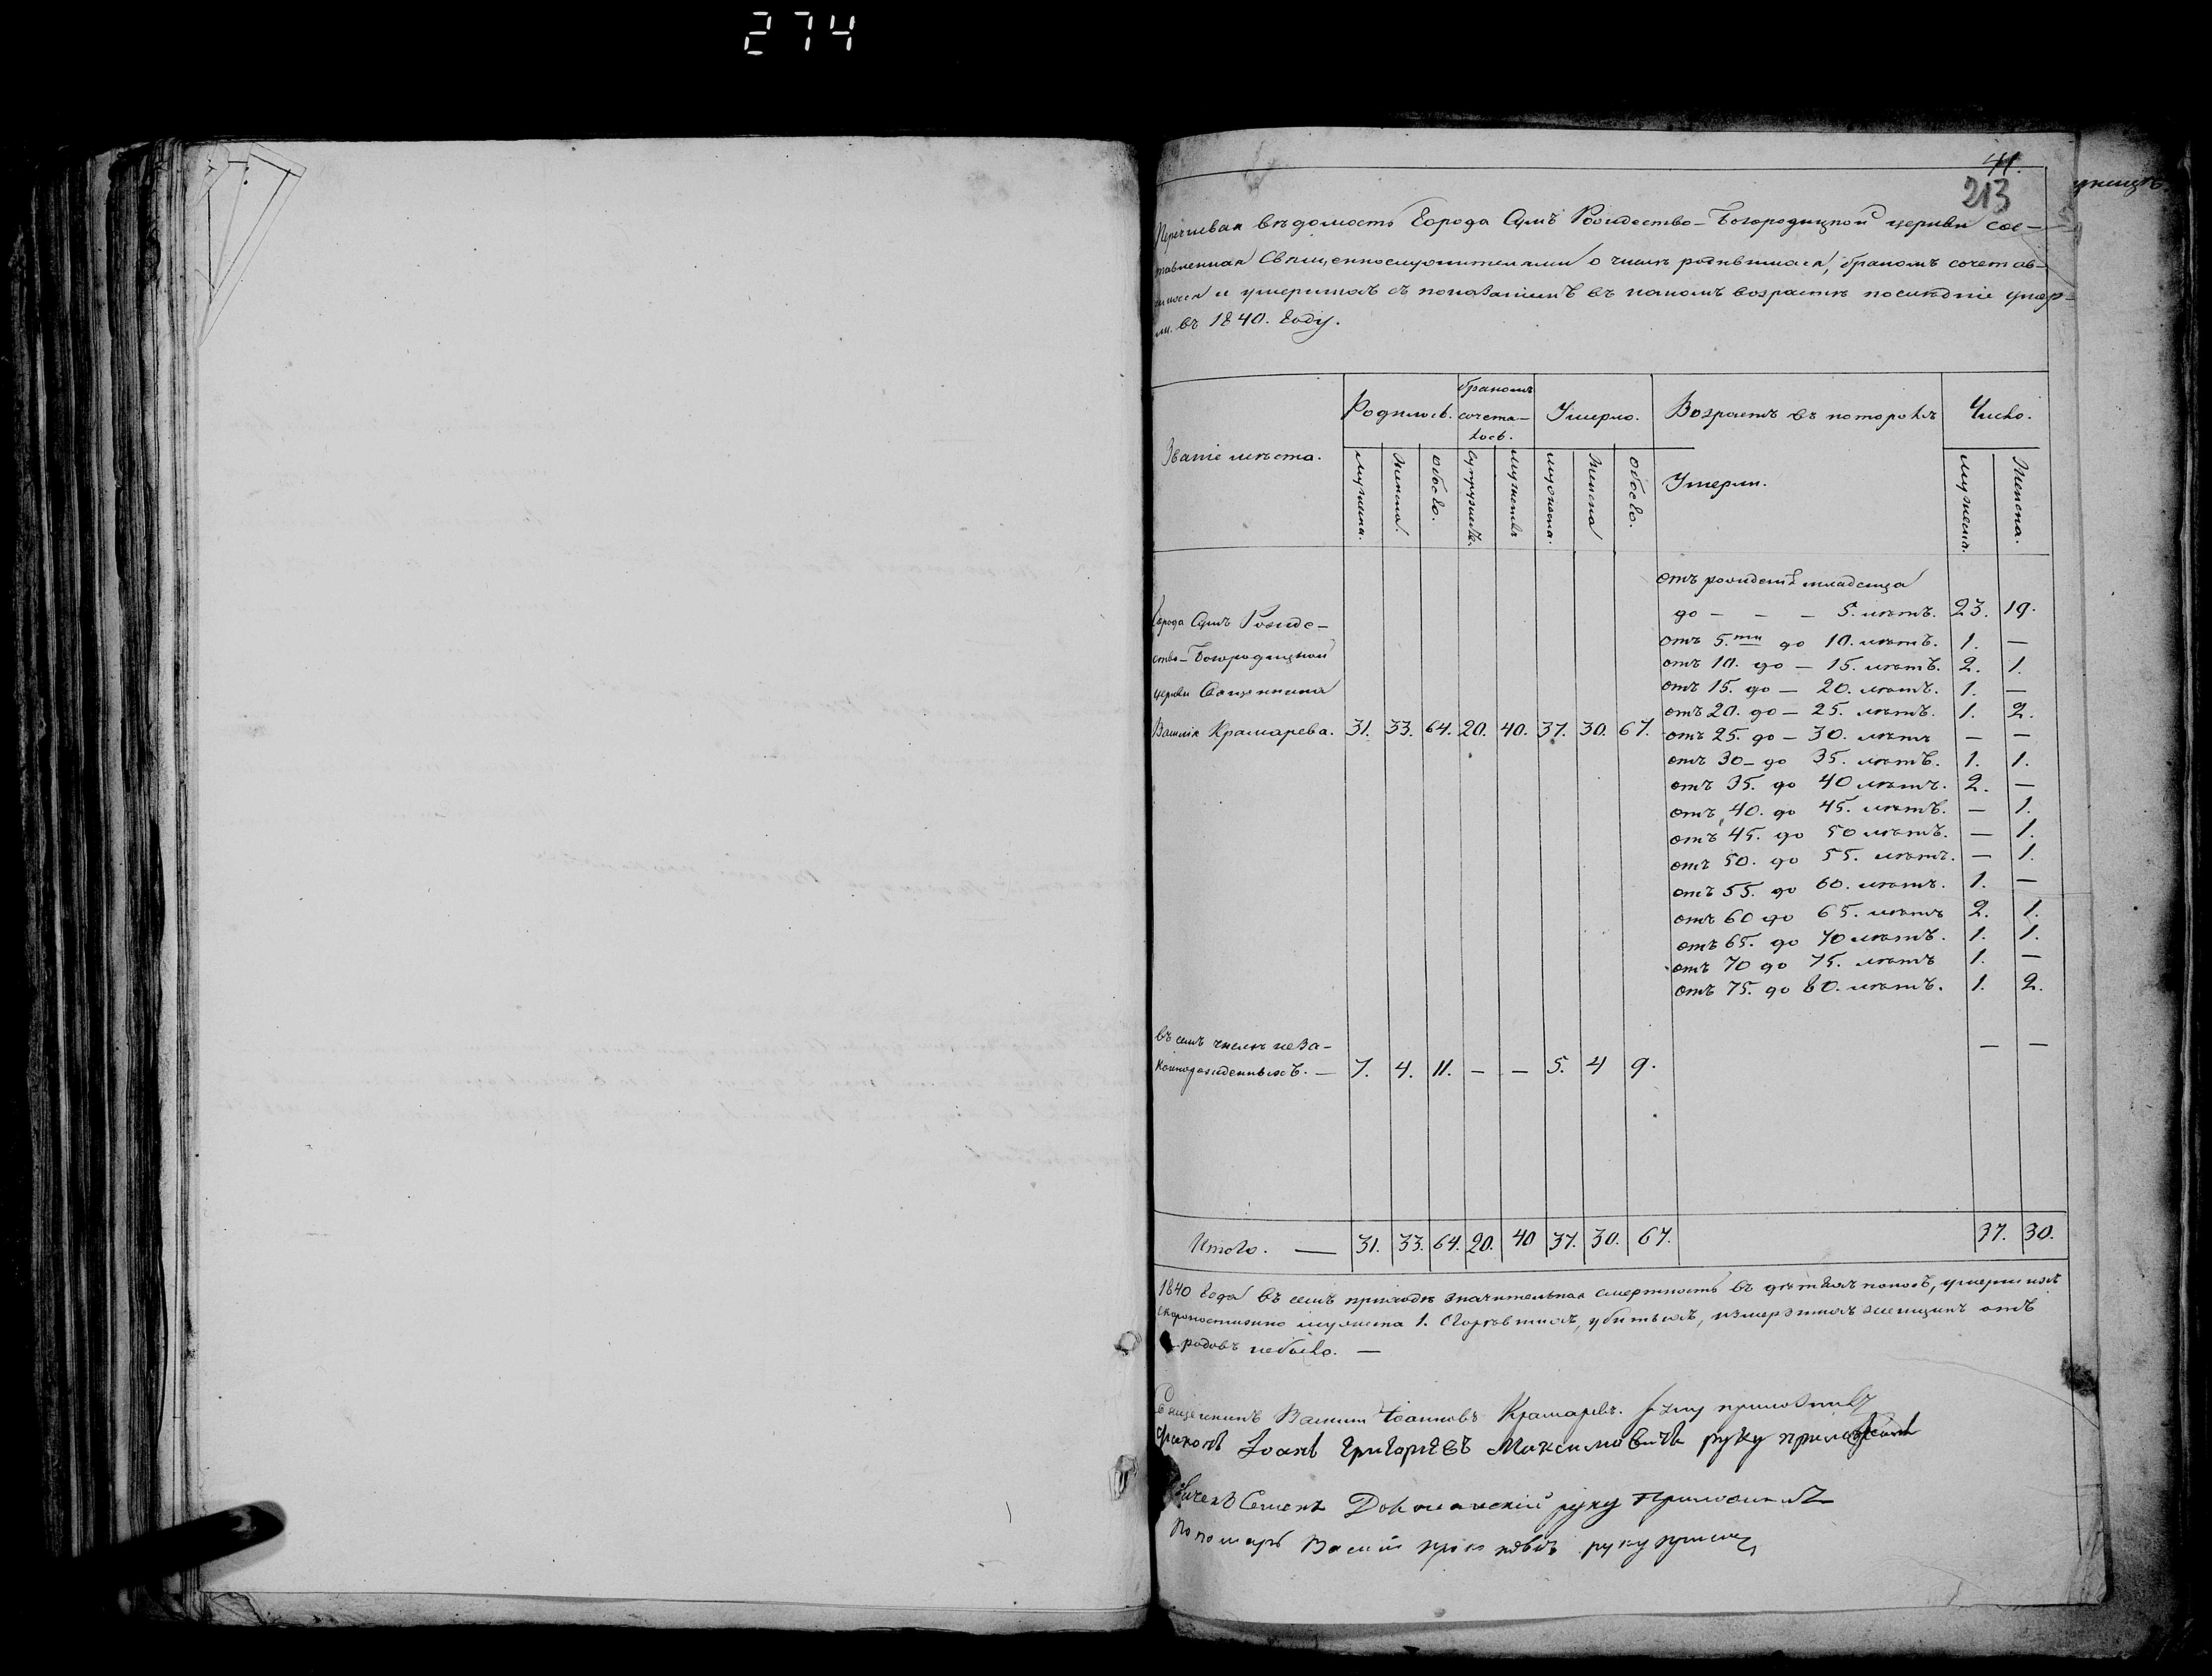 274
41.
213
Перечневая вѣдомость Города Сумъ Рождество-Богородицкой церкви сос-
тавленная Священнослужителями о числѣ родившихся, бракомъ сочетав-
шихся и умершихъ съ показаніемъ въ какомъ возрастѣ послѣдніе умер-
ли. въ 1840. Году.
Званіе мѣста. Родилось. бракомъ сочета-лось. Умерло. Возрастъ въ которомъ Умерли. Число.
мужеска. женска. обоего. супружествъ. мужеска женска обоего. мужеска. женска.
отъ рожденія младенца
до — — — 5. лѣтъ. 23. 19.
отъ 5.ти до 10. лѣтъ. 1. —
отъ 10. до — 15. лѣтъ. 2. 1.
отъ 15. до — 20. лѣтъ. 1. —
отъ 20. до — 25. лѣтъ. 1. 2.
Города Сумъ Рожде-
ство-Богородицкой
церкви Священника
Василія Крамарева. 31. 33. 64. 20. 40. 37. 30. 67.
отъ 25. до — 30. лѣтъ — —
отъ 30 — до 35. лѣтъ. 1. 1.
отъ 35. до 40 лѣтъ. 2. —
отъ 40. до 45. лѣтъ. — 1.
отъ 45. до 50 лѣтъ. — 1.
отъ 50. до 55. лѣтъ. — 1.
отъ 55. до 60. лѣтъ. 1. —
отъ 60 до 65. лѣтъ 2. 1.
отъ 65. до 70 лѣтъ. 1. 1.
отъ 70 до 75. лѣтъ 1. —
отъ 75. до 80. лѣтъ. 1. 2.
въ семъ числѣ неза- — —
коннорожденныхъ. — 7. 4. 11. — — 5. 4 9.
Итого. — 31. 33. 64. 20. 40 37. 30. 67. 37. 30.
1840 Года въ семъ приходѣ значительная смертность въ дѣтяхъ, умершихъ
скоропостижно мужеска 1. Сгорѣвшихъ, убитыхъ, измерзшихъ женщинъ отъ
родовъ небыло. —
Священникъ Василій Іоанновъ Крамаревъ. руку приложилъ
Діаконъ Іоаннъ Григоріевъ Максимовичъ руку приложилъ
Семенъ руку Приложилъ
Пономарь Василій руку